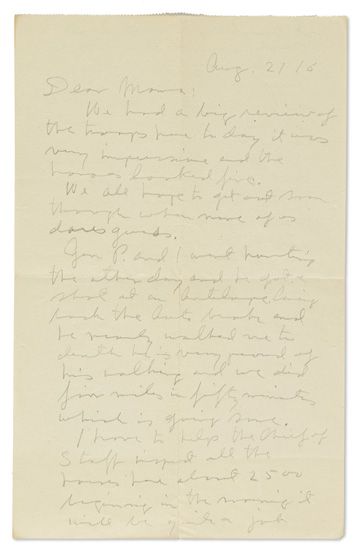 Aug. 21/16
Dear Mama:
We had a big review of
the troops here to day it was
very impressive and the
horses looked fine.
We all hope to get out soon
though when none of us
dares guess.
Gen P. and I went hunting
the other day and he got a
shot at an Antelope. Coming
back the Auto broke and
he nearly walked me to
death he is very proud of
his walking and we did
five miles in fifty minutes
which is going some.
I have to help the Chief of
Staff inspect all the
horses here about 2500
beginning in the morning it
will be quite a job